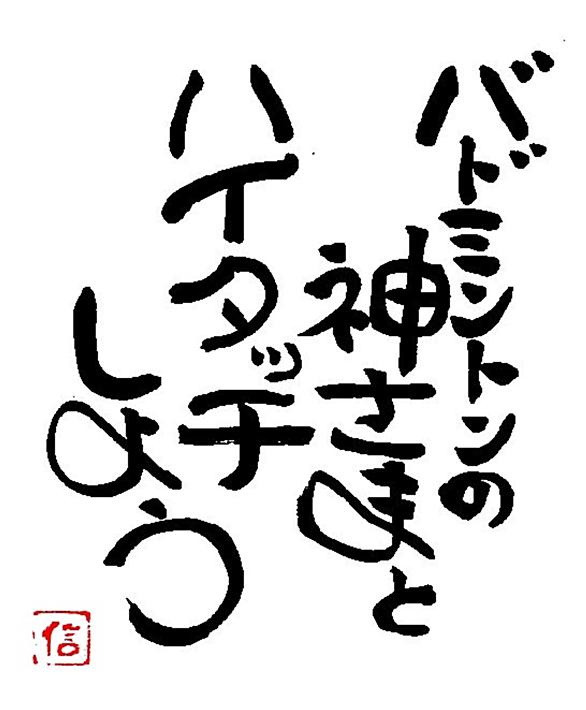 バドミントンの
神さまと
ハイタッチ
しよう
信